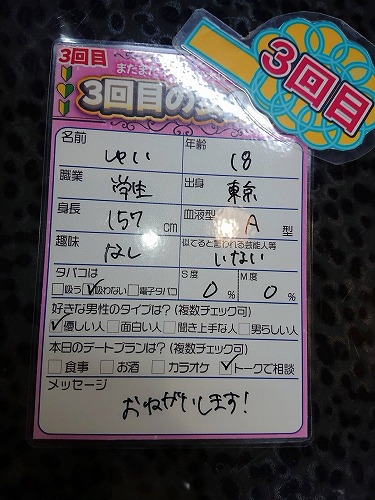 3回目
3回目
またまた
3回目の
名前 しゅい 年齢 18
職業 学生 出身 東京
身長 157 cm 血液型 A 型
趣味 なし 似てると言われる芸能人等 いない
タバコは □吸う ☑吸わない □電子タバコ S度 0% M度 0%
好きな男性のタイプは?(複数チェック可)
☑優しい人 □面白い人 □聞き上手な人 □男らしい人
本日のデートプランは?(複数チェック可)
□食事 □お酒 □カラオケ ☑トークで相談
メッセージ
おねがいします!